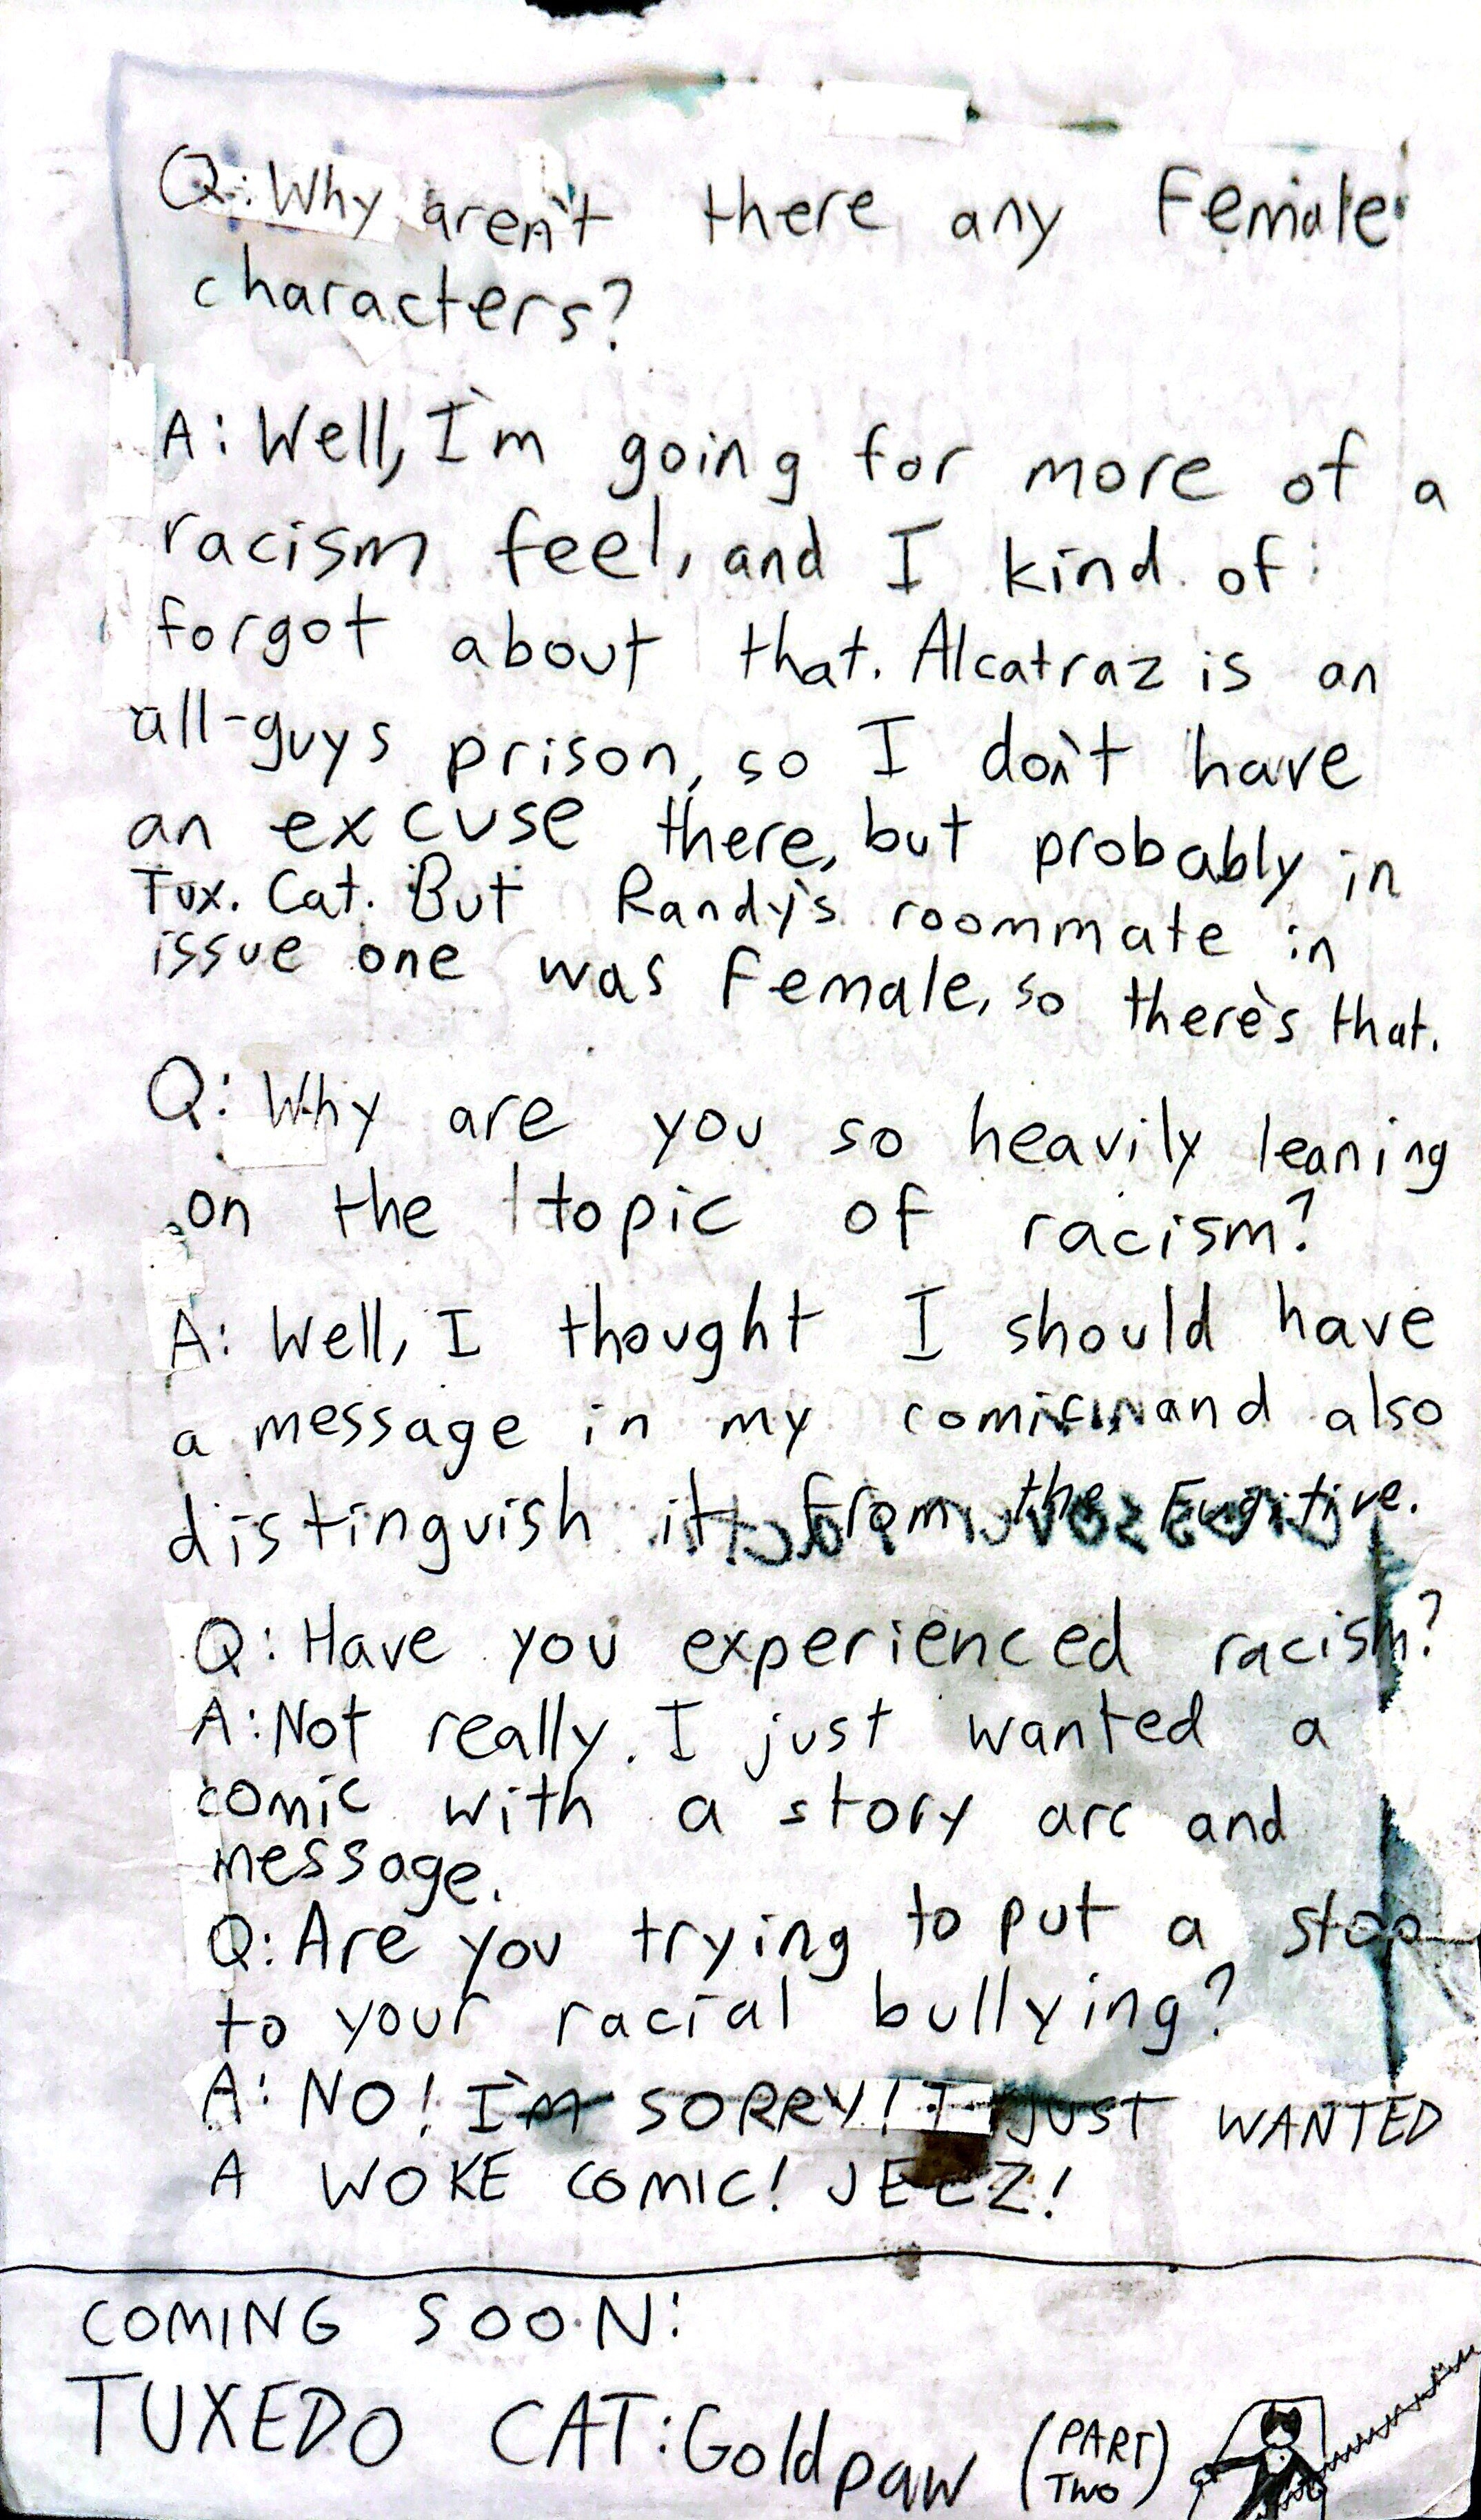 Q: Why aren't there any Female
characters?
A: Well, I'm going for more of a
racism feel, and I kind of
forgot about that. Alcatraz is an
all-guys prison, so I don't have
an excuse there, but probably in
Tux. Cat. But Randy's roommate in
issue one was Female, so there's that.
Q: Why are you so heavily leaning
on the topic of racism?
A: Well, I thought I should have
a message in my comic and also
distinguish it from the Fugitive.
Q: Have you experienced racism?
A: Not really. I just wanted a
comic with a story arc and
message.
Q: Are you trying to put a stop
to your racial bullying?
A: NO! I'M SORRY! I JUST WANTED
A WOKE COMIC! JEEZ!
COMING SOON:
TUXEDO CAT: Goldpaw (PART
TWO)